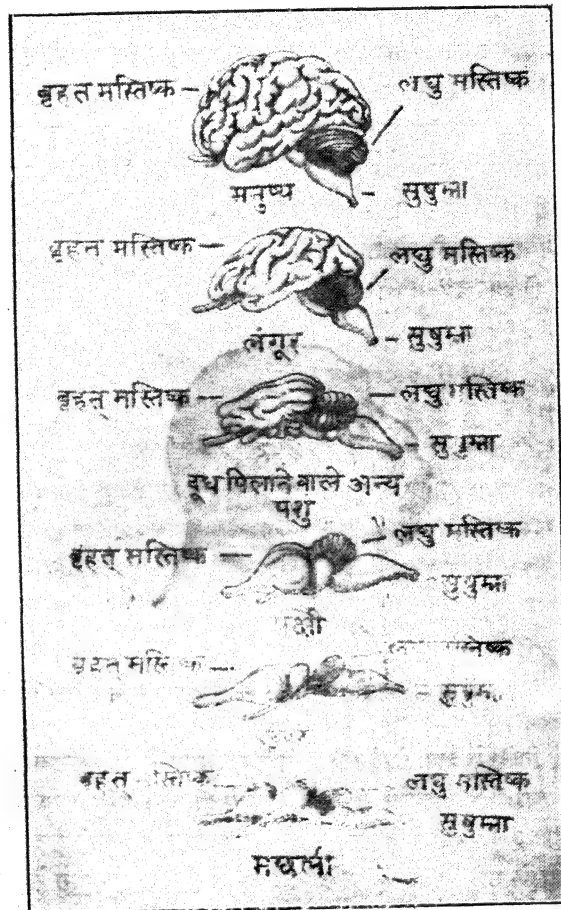 बृहत मस्तिष्क
लघु मस्तिष्क
मनुष्य
सुषुम्ना
बृहत् मस्तिष्क
लघु मस्तिष्क
लंगूर
सुषुम्ना
बृहत् मस्तिष्क
लघु मस्तिष्क
सुषुम्ना
दूध पिलाने वाले अन्य
पशु
बृहत् मस्तिष्क
लघु मस्तिष्क
सुषुम्ना
पक्षी
बृहत् मस्तिष्क
लघु मस्तिष्क
सुषुम्ना
बृहत् मस्तिष्क
लघु मस्तिष्क
सुषुम्ना
मछली